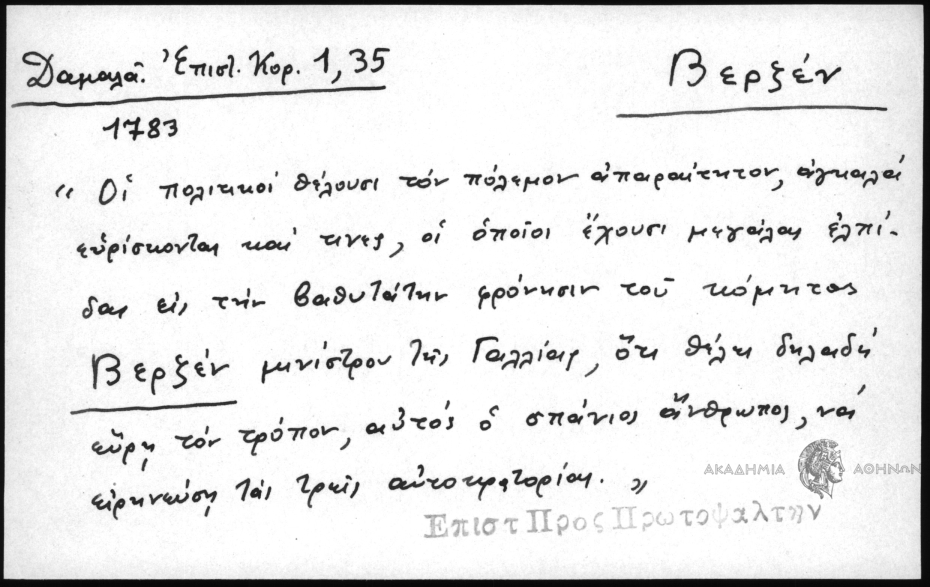 Δαμαλᾶ. Ἐπιστ. Κορ. 1, 35
Βερξέν
1783
" Οἱ πολιτικοί θέλουσι τόν πόλεμον ἀπαραίτητον, ἀγκαλά
εὑρίσκονται καί τινες, οἱ ὁποῖοι ἔχουσι μεγάλας ἐλπί-
δας εἰς τήν βαθυτάτην φρόνησιν τοῦ κόμητος
Βερξέν μινίστρου τῆς Γαλλίας, ὅτι θέλει δηλαδή
εὕρῃ τόν τρόπον, αὐτός ὁ σπάνιος ἄνθρωπος, νά
εἰρηνεύσῃ τάς τρεῖς αὐτοκρατορίας. "
ΑΚΑΔΗΜΙΑ ΑΘΗΝΩΝ
Επιστ Προς Πρωτοψαλτην